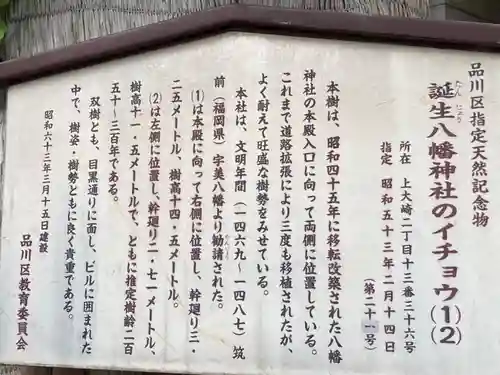 品川区指定天然記念物
誕生八幡神社のイチョウ(1)(2)
たん じょう
所在 上大崎二丁目十三番三十六号
指定 昭和五十三年二月十四日
(第二十一号)
本樹は、昭和四十五年に移転改築された八幡
神社の本殿入口に向って両側に位置している。
これまで道路拡張により三度も移植されたが、
よく耐えて旺盛な樹勢をみせている。
本社は、文明年間(一四六九~一四八七)筑
前(福岡県)宇美八幡より勧請された。
かんじょう
(1)は本殿に向って右側に位置し、幹廻り三・
二五メートル、樹高十四・五メートル。
(2)は左側に位置し、幹廻り二・七一メートル、
樹高十一・五メートルで、ともに推定樹齢二百
五十~三百年である。
双樹とも、目黒通りに面し、ビルに囲まれた
中で、樹姿・樹勢ともに良く貴重である。
昭和六十三年三月十五日建設
品川区教育委員会